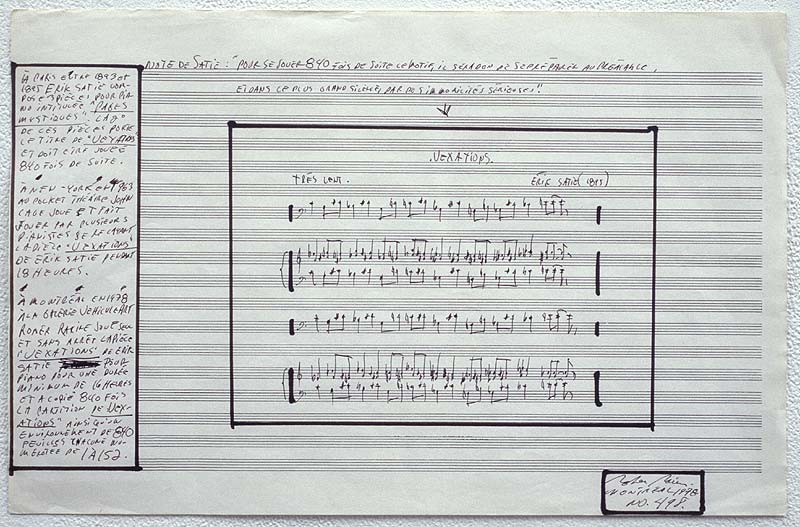 NOTE DE SATIE : "POUR SE JOUER 840 FOIS DE SUITE CE MOTIF, IL SERA BON DE SE PRÉPARER AU PRÉALABLE,
ET DANS LE PLUS GRAND SILENCE, PAR DES IMMOBILITÉS SÉRIEUSES!!
À PARIS ENTRE 1893 ET
1895 ERIK SATIE COM-
POSE 3 PIÈCES POUR PIA-
NO INTITULÉE "PAGES
MYSTIQUES". LA 2e
DE CES PIÈCES PORTE
LE TITRE DE "VEXATIONS"
ET DOIT ÊTRE JOUÉE
840 FOIS DE SUITE.
À NEW-YORK EN 1963
AU POCKET THÉATRE JOHN
CAGE JOUE ET FAIT
JOUER PAR PLUSIEURS
PIANISTES SE RELAYANT
LA PIÈCE "VEXATIONS"
DE ERIK SATIE PENDANT
18 HEURES.
À MONTRÉAL EN 1978
À LA GALERIE VÉHICULE ART
ROBER RACINE JOUE SEUL
ET SANS ARRÊT LA PIÈCE
"VEXATIONS" DE ERIK
SATIE POUR
PIANO POUR UNE DURÉE
MINIMUM DE 16 HEURES
ET A COPIÉ 840 FOIS
LA PARTITION DE VEX-
ATIONS" AINSI QU'UN
ENVIRONNEMENT DE 840
FEUILLES CHACUNE NU-
MÉROTÉE DE 1 À 152.
VEXATIONS.
TRÈS LENT.
ERIK SATIE (1893)
Rober Racine.
MONTRÉAL 1978
NO. 498.